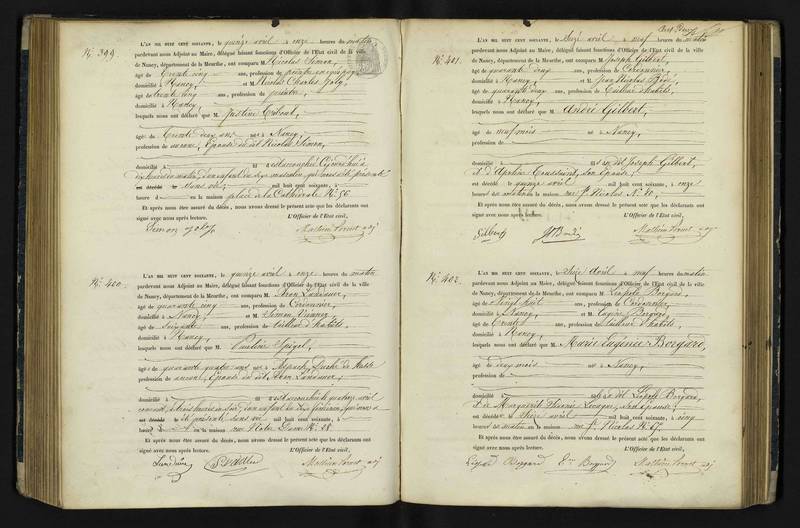 N.° 399
L'AN MIL HUIT CENT SOIXANTE, le quinze avril à onze heures du matin
pardevant nous Adjoint au Maire, délégué faisant fonctions d'Officier de l'Etat civil de la ville
de Nancy, département de la Meurthe, ont comparu M. Nicolas Simon,
âgé de trente cinq ans, profession de peintre en
domicilié à Nancy, et M. Nicolas Charles
âgé de trente cinq ans, profession de peintre,
domicilié à Nancy,
lesquels nous ont déclaré que M. Justine
âgée de trente deux ans née à Nancy,
profession de aucune, Epouse de dit Nicolas Simon,
domicilié à est accouchée Cejourd'hui à
dix heures du matin, d'un enfant du sexe masculin, qui nous a été présenté
est décédé sans vie, mil huit cent soixante, à
heure en la maison place de la Cathédrale N.° 56.
Et après nous être assuré du décès, nous avons dressé le présent acte que les déclarants ont
signé avec nous après lecture. L'Officier de l'Etat civil,
Simon
N.° 400
L'AN MIL HUIT CENT SOIXANTE, le quinze avril à onze heures du matin
pardevant nous Adjoint au Maire, délégué faisant fonctions d'Officier de l'Etat civil de la ville
de Nancy, département de la Meurthe, ont comparu M. Aron
âgé de quarante cinq ans, profession de Cordonnier,
domicilié à Nancy, et M. Simon
âgé de Soixante ans, profession de tailleur d'habits,
domicilié à Nancy,
lesquels nous ont déclaré que M. Pauline Spigel,
âgée de quarante quatre ans née à Duché de
profession de aucune, Epouse de dit Aron
domicilié à est accouchée le quatorze avril
courant, à trois heures du soir, d'un enfant du sexe féminin, qui nous a
est décédé été présenté sans vie mil huit cent soixante, à
heure en la maison rue Notre Dame N.° 28.
Et après nous être assuré du décès, nous avons dressé le présent acte que les déclarants ont
signé avec nous après lecture. L'Officier de l'Etat civil,
N.° 401.
L'AN MIL HUIT CENT SOIXANTE, le Seize avril à neuf heures du matin
pardevant nous Adjoint au Maire, délégué faisant fonctions d'Officier de l'Etat civil de la ville
de Nancy, département de la Meurthe, ont comparu M. Joseph Gilbert,
âgé de quarante deux ans, profession de Cordonnier,
domicilié à Nancy, et M. Jean Nicolas
âgé de quarante deux ans, profession de tailleur d'habits,
domicilié à Nancy,
lesquels nous ont déclaré que M. André Gilbert,
âgé de neuf mois né à Nancy,
profession de
domicilié à fils de dit Joseph Gilbert,
et d' Toussaint, son épouse,
est décédé le quinze avril mil huit cent soixante, à onze
heures du matin en la maison rue St. Nicolas N.° 40,
Et après nous être assuré du décès, nous avons dressé le présent acte que les déclarants ont
signé avec nous après lecture. L'Officier de l'Etat civil,
Gilbert
N.° 402.
L'AN MIL HUIT CENT SOIXANTE, le Seize avril à neuf heures du matin
pardevant nous Adjoint au Maire, délégué faisant fonctions d'Officier de l'Etat civil de la ville
de Nancy, département de la Meurthe, ont comparu M. Léopold Borgard,
âgé de vingt huit ans, profession de Cordonnier,
domicilié à Nancy, et M. Eugène Borgard,
âgé de trente ans, profession de tailleur d'habits,
domicilié à Nancy,
lesquels nous ont déclaré que M. Marie Eugénie Borgard,
âgée de deux mois née à Nancy,
profession de
domicilié à fille de dit Léopold Borgard,
et de Marguerite son épouse,
est décédée le Seize avril mil huit cent soixante, à cinq
heures du matin en la maison rue St. Nicolas N.° 67.
Et après nous être assuré du décès, nous avons dressé le présent acte que les déclarants ont
signé avec nous après lecture. L'Officier de l'Etat civil,
Léopold Borgard